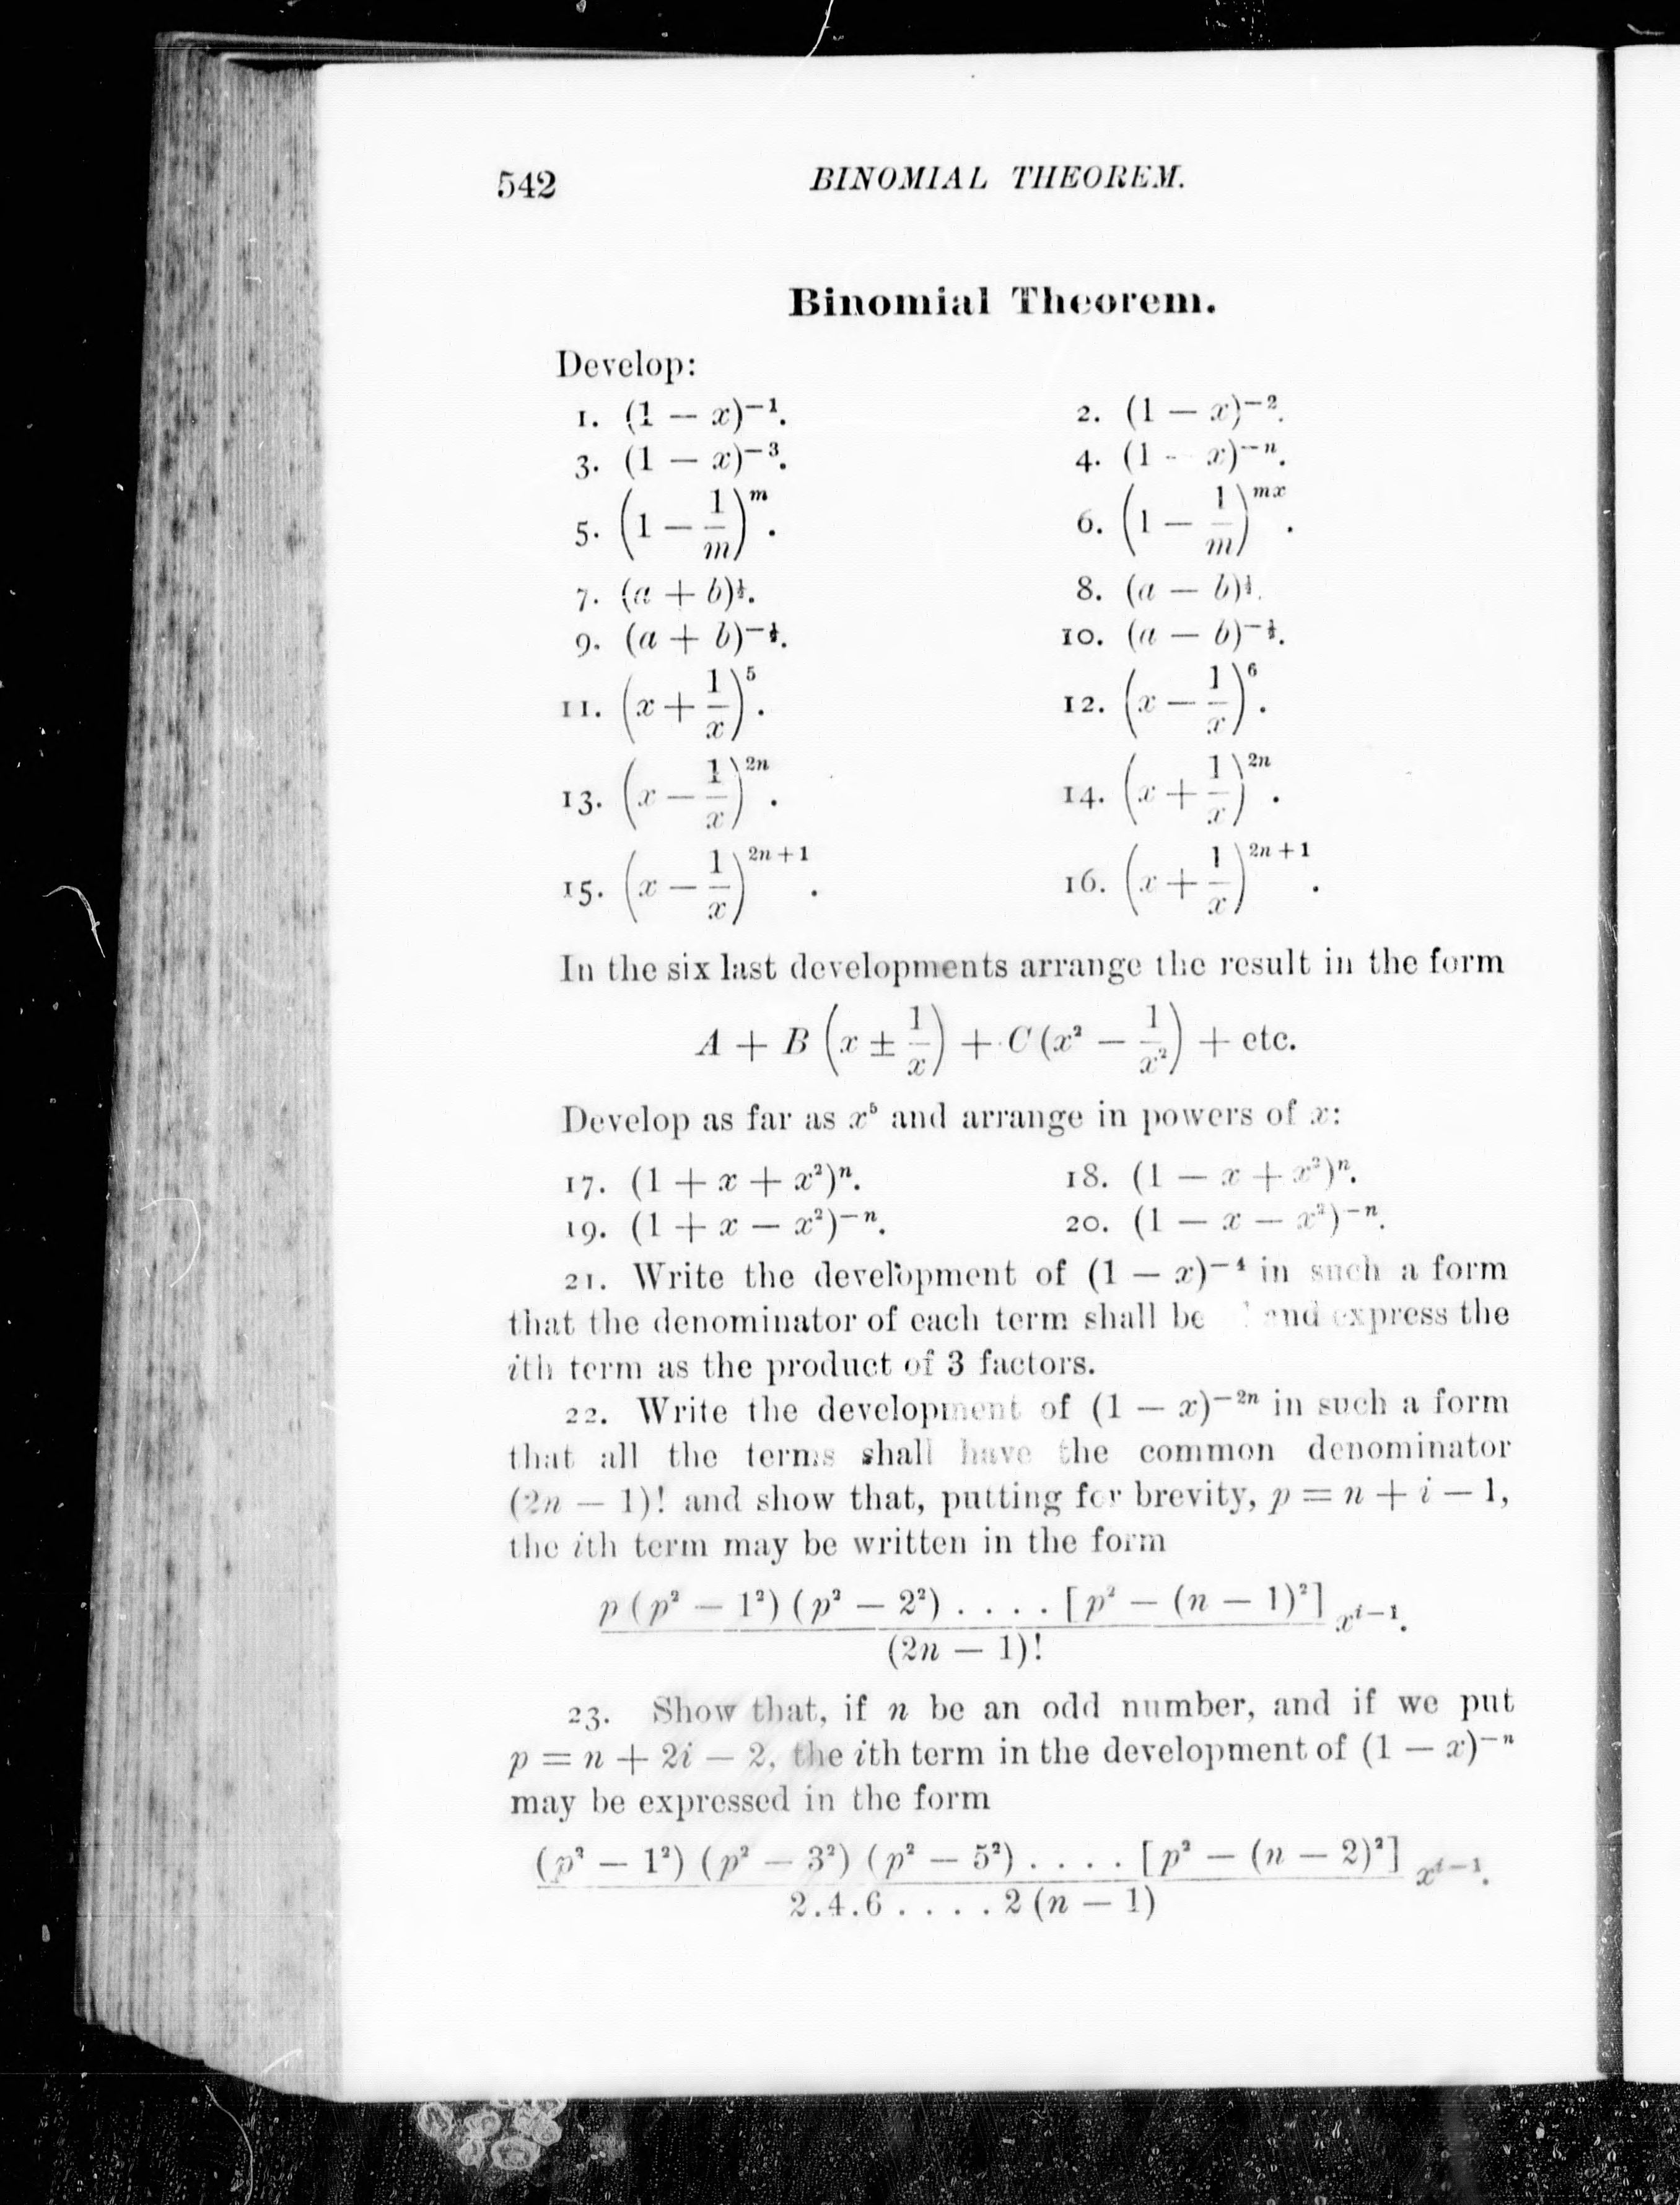 542 BINOMIAL THEOREM.
Binomial Theorem.
Develop:
1. (1 − x)⁻¹. 2. (1 − x)⁻².
3. (1 − x)⁻³. 4. (1 − x)⁻ⁿ.
5. (1 − 1/m)^m. 6. (1 − 1/m)^{mx}.
7. (a + b) 8. (a − b)
9. (a + b) 10. (a − b)
11. (x + 1/x)⁵. 12. (x − 1/x)⁶.
13. (x − 1/x)^{2n}. 14. (x + 1/x)^{2n}.
15. (x − 1/x)^{2n + 1}. 16. (x + 1/x)^{2n + 1}.
In the six last developments arrange the result in the form
A + B (x ± 1/x) + C (x² − 1/x²) + etc.
Develop as far as x⁵ and arrange in powers of x:
17. (1 + x + x²)ⁿ. 18. (1 − x + x²)ⁿ.
19. (1 + x − x²)⁻ⁿ. 20. (1 − x − x²)⁻ⁿ.
21. Write the development of (1 − x)⁻⁴ in such a form
that the denominator of each term shall be and express the
ith term as the product of 3 factors.
22. Write the development of (1 − x)^{−2n} in such a form
that all the terms shall have the common denominator
(2n − 1)! and show that, putting for brevity, p = n + i − 1,
the ith term may be written in the form
p (p² − 1²) (p² − 2²) . . . . [p² − (n − 1)²] / (2n − 1)! x^{i−1}.
23. Show that, if n be an odd number, and if we put
p = n + 2i − 2, the ith term in the development of (1 − x)⁻ⁿ
may be expressed in the form
(p² − 1²) (p² − 3²) (p² − 5²) . . . . [p² − (n − 2)²] / 2.4.6 . . . . 2 (n − 1) x^{i−1}.